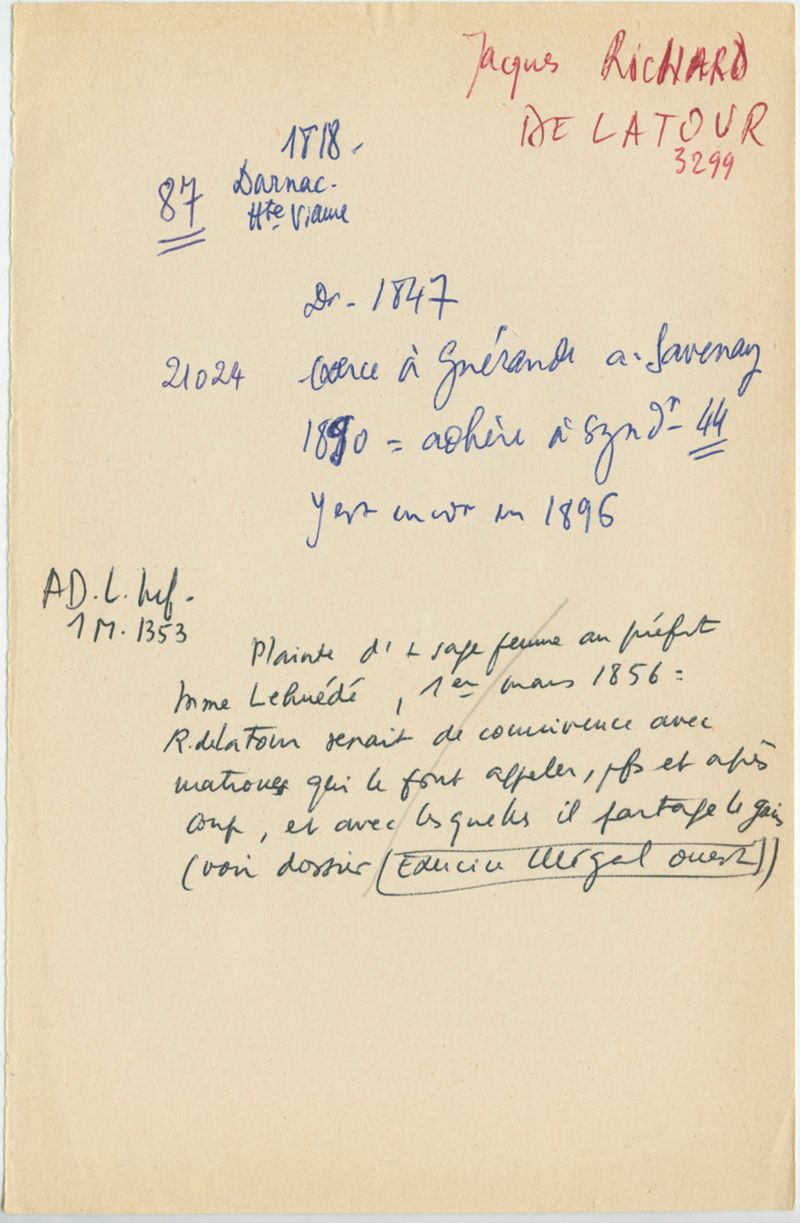 Jacques RICHARD
DE LATOUR
3299
1818.
87 Darnac.
Hte Vienne
Dr. 1847
21024 exerce à Guérande a. Savenay
1890 = adhère à Synd. 44
Y est encore en 1896
AD. L. Inf.
1 M. 1353
Plainte d' 1 sage femme au préfet
Mme Lehuédé, 1er mars 1856 :
R. de Latour serait de connivence avec
matrones qui le font appeler, pfs et après
coup, et avec lesquelles il partage le gain
(voir dossier (Exercice illégal ouest))